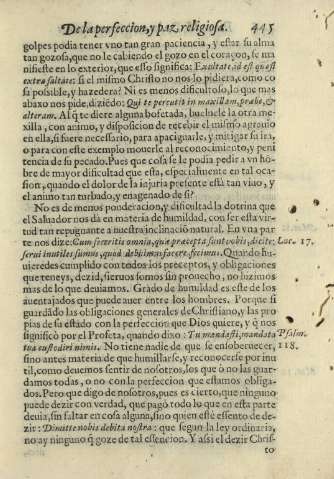 De la perfeccion, y paz religiosa. 445
golpes podia tener vno tan gran paciencia, y estar su alma
tan gozosa, que no le cabiendo el gozo en el coraçon, se ma
nifieste en lo exterior, que esso significa: Exaltate, id est quasi
extra saltate: si el mismo Christo no nos lo pidiera, como co
sa possible, y hazedera? Ni es menos dificultoso, lo que mas
abaxo nos pide, diziẽdo: Qui te percutit in maxillam, præbe, &
alteram. Al q̃ te diere alguna bofetada, bueluele la otra me
xilla, con animo, y disposicion de recebir el mismo agrauio
en ella, si fuere necessario, para apaciguarle, y mitigar su ira,
o para con este exemplo mouerle al reconocimiento, y peni
tencia de su pecado. Pues que cosa se le podia pedir a vn hõ
bre de mayor dificultad que esta, especialmente en tal oca
sion, quando el dolor de la injuria presente està tan viuo, y
el animo tan turbado, y enagenado de si?
No es de menos ponderacion, y dificultad la dotrina que
el Saluador nos da en materia de humildad, con ser esta vir
tud tan repugnante a nuestra inclinaciõ natural. En vna par
te nos dize: Cum feceritis omnia, quæ præcepta sunt vobis, dicite: Luc. 17.
serui inutiles sumus, quod debuimus facere, fecimus. Quando hu-
uieredes cumplido con todos los preceptos, y obligaciones
que teneys, dezid, sieruos somos sin prouecho, no hazimos
mas de lo que deuiamos. Grado de humildad es este de los
auentajados que puede auer entre los hombres. Porque si
guardãdo las obligaciones generales de Christiano, y las pro
pias de su estado con la perfeccion que Dios quiere, y q̃ nos
significò por el Profeta, quando dixo: Tu mandasti, mandata Psalm.
tua custodiri nimis. No tiene nadie de que se ensoberuecer, 118.
sino antes materia de que humillarse, y reconocerse por inu
til, como deuemos sentir de nosotros, los que ò no las guar-
damos todas, o no con la perfeccion que estamos obliga-
dos. Pero que digo de nosotros, pues es cierto, que ninguno
puede dezir con verdad, que pagò todo lo que en esta parte
deuia, sin faltar en cosa alguna, sino quien estè essento de de-
zir: Dimitte nobis debita nostra: que segun la ley ordinaria,
no ay ninguno q̃ goze de tal essencion. Y assi el dezir Chris-
to